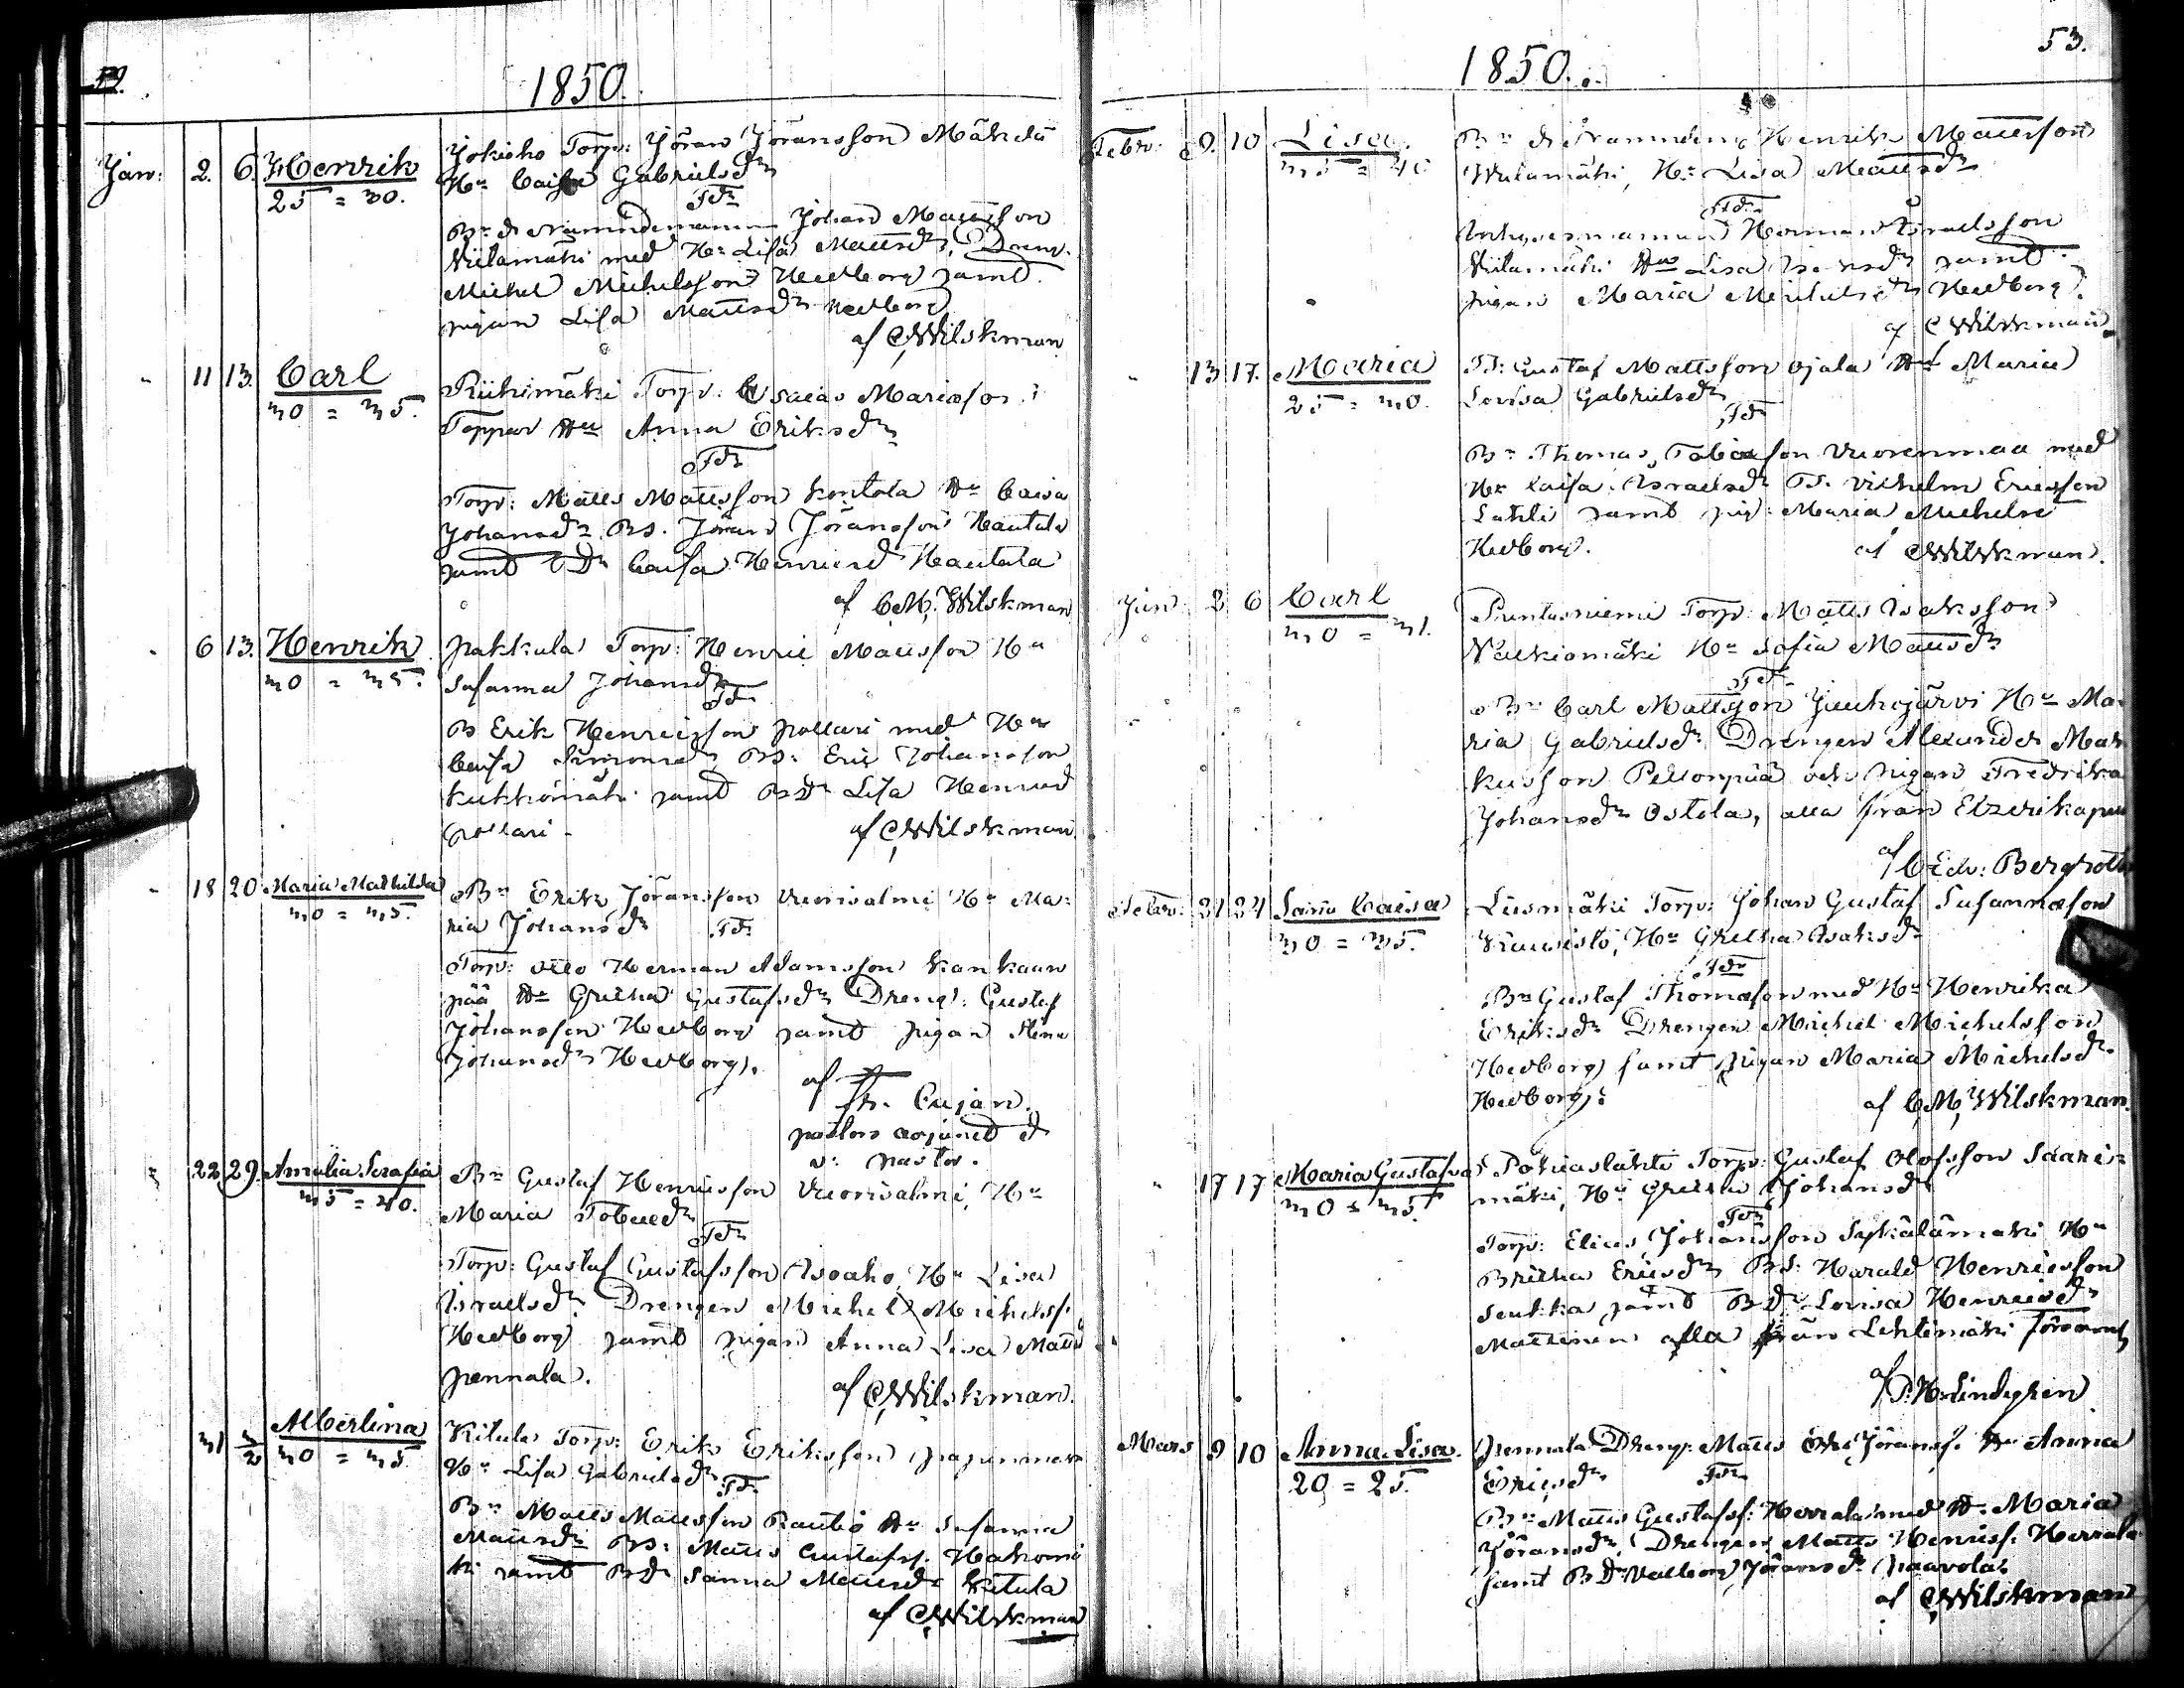 1850.
Jan: 2. 6. Henrik
25 = 30.
Jokisho Torp: Jöran Jöransson Mäkelä
Hu Caisa Gabrielsdr
Fdr
Bn & Nämndemannen Johan Mattsson
Viitamäki med Hu Lisa Mattsdr, Dreng.
Michel Michelsson Hedborg samt
pigan Lisa Mattsdr Hedborg
af CWilskman
11 13. Carl
30 = 35.
Riihimäki Torp: Esaias Mariasson
Toppar Hu Anna Eriksdr
Fdr
Torp: Matts Mattsson Kontola Hu Caisa
Johansdr BS. Jöran Jöransson Hautala
samt BDr Caisa Henricsd Hautala
af C.M. Wilskman
6 13. Henrik
30 = 35.
Pakkula Torp: Henric Mattsson Hu
Susanna Johansdr
Fdr
B Erik Henricsson Pollari med Hu
Caisa Simonsdr, BS: Eric Johansson
Kukkomäki samt BDr Lisa Henricsd
Pollari
af CWilskman
18 20 Maria Mathilda
30 = 35.
Bn Erik Jöransson Vuorisalmi Hu Ma-
ria Johansdr Fdr
Torp: Otto Herman Adamsson Kankaan
pää Hu Gretha Gustafsdr Drengn: Gustaf
Johansson Hedborg samt pigan Stina
Johansdr Hedborg.
af
Fr. Cajan.
pastors adjunct &
v: pastor.
22 29. Amalia Serafia
35 = 40.
Bn Gustaf Henricsson Vuorisalmi, Hu
Maria Tobiaedr
Fdr
Torp: Gustaf Gustafsson Isoaho, Hu Lisa
Israelsdr Drengen Michel Michelss.
Hedborg samt pigan Anna Lisa Matts
Pennala.
af CWilskman.
31 3/2 Albertina
30 = 35.
Kitula Torp: Erik Eriksson
Hu Lisa Gabrielsdr Fdr
Bn Matts Mattsson Rautio Hu Susanna
Mattsdr BS: Matts Gustafss. Hakomä
ki samt BDr Sanna Mattsdr Kitula
af CWilskman
53.
1850.
Febr: 9. 10 Lisa.
35 = 40
Bn & Nämndem: Henrik Mattsson
Viitamäki, Hu Lisa Mattsdr
Fdr
Herman Israelsson
Viitamäki Hu Lisa Isaksdr samt
pigan Maria Michelsdr Hedborg.
af CWilskman
13 17. Maria
25 = 30.
TS: Gustaf Mattsson Ojala Hu Maria
Lovisa Gabrielsdr
Fdr
Bn Thomas Tobiasson Vuorenmaa med
Hu Caisa Israelsdr TS. Vilhelm Ericsson
Lahti samt pig: Maria Michelsd
Hedborg.
af CWilskman.
Jan 2 6 Carl
30 = 31.
Puntarniemi Torp: Matts Isaksson
Valkiamäki Hu Sofia Mattsdr
Fdr
Bn Carl Mattsson Juukojärvi Hu Ma-
ria Gabrielsdr Drengen Alexander Mar
kusson Peltonpää och pigan Fredrika
Johansdr Ostola, alla från Etzerikapell
af C Edv: Bergroth
Febr: 21 24 Sanna Caisa
30 = 35.
Liesmäki Torp: Johan Gustaf Susannasson
Kiwistö, Hu Gretha Isaksdr
Fdr
Bn Gustaf Thomasson med Hu Henrika
Eriksdr Drengen Michel Michelsson
Hedborg samt pigan Maria Michelsdr
Hedborg.
af C.M. Wilskman.
17 17 Maria Gustafva
30 = 35.
Pohiaslahti Torp: Gustaf Olofsson Saari-
mäki, Hu Gretha Johansdr
Fdr
Torp: Elias Johansson Syrjälämäki Hu
Britha Ericsdr BS: Harald Henricsson
samt BDr Lovisa Henricsdr
Mattinen alla från Lehtimäki
af P.H. Lindgren
Mars 9 10 Anna Lisa.
20 = 25.
Pennala Dreng: Matts Jöranss. Hu Anna
Ericsdr Fdr
Bn Matts Gustafss: Herrala med Hu Maria
Jöransdr, Drengen Matts Henricss. Herrala
samt BDr Valborg Jöransdr Paavola
af CWilskman